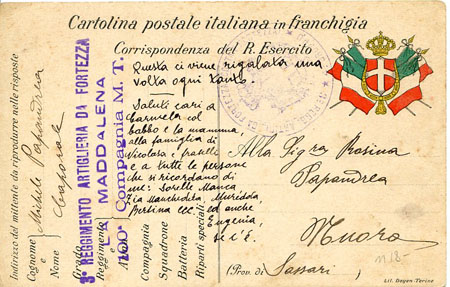 Cartolina postale italiana in franchigia
Corrispondenza del R. Esercito
Questa ci viene regalata una
volta ogni tanto
Saluti cari a
Carmela col
babbo e la mamma,
alla famiglia di
Nicolosa e fratelli
e a tutte le persone
che si ricordano di
me: Sorelle Manca
Zia Manchedda, Muridda,
ecc. ed anche
Eugenia,
Alla Sigra Rosina
Papandrea
Nuoro
(Prov. di Sassari)
Indirizzo del mittente da riprodurre nelle risposte
Cognome e Nome
Michele Papandrea
Caporale
Grado
Reggimento
Arma
Compagnia
Squadrone
Batteria
Riparti speciali
3° REGGIMENTO ARTIGLIERIA DA FORTEZZA
LA MADDALENA
Compagnia M. T.
Lit. Doyen-Torino